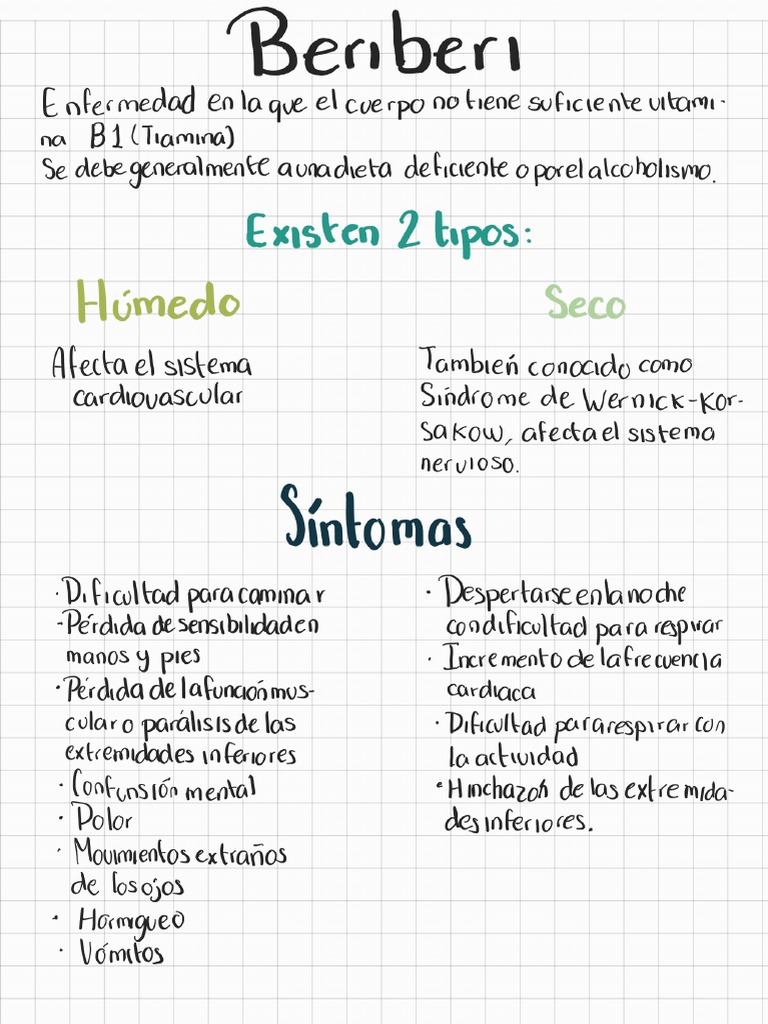 Beriberi
Enfermedad en la que el cuerpo no tiene suficiente vitami-
na B1 (Tiamina)
Se debe generalmente a una dieta deficiente o por el alcoholismo.
Existen 2 tipos:
Húmedo
Afecta el sistema
cardiovascular
Seco
También conocido como
Síndrome de Wernick-Kor-
sakow, afecta el sistema
nervioso.
Síntomas
· Dificultad para caminar
· Pérdida de sensibilidad en
manos y pies
· Pérdida de la función mus-
cular o parálisis de las
extremidades inferiores
· Confunsión mental
· Dolor
· Movimientos extraños
de los ojos
· Hormigueo
· Vómitos
· Despertarse en la noche
con dificultad para respirar
· Incremento de la frecuencia
cardiaca
· Dificultad para respirar con
la actividad
· Hinchazón de las extremida-
des inferiores.